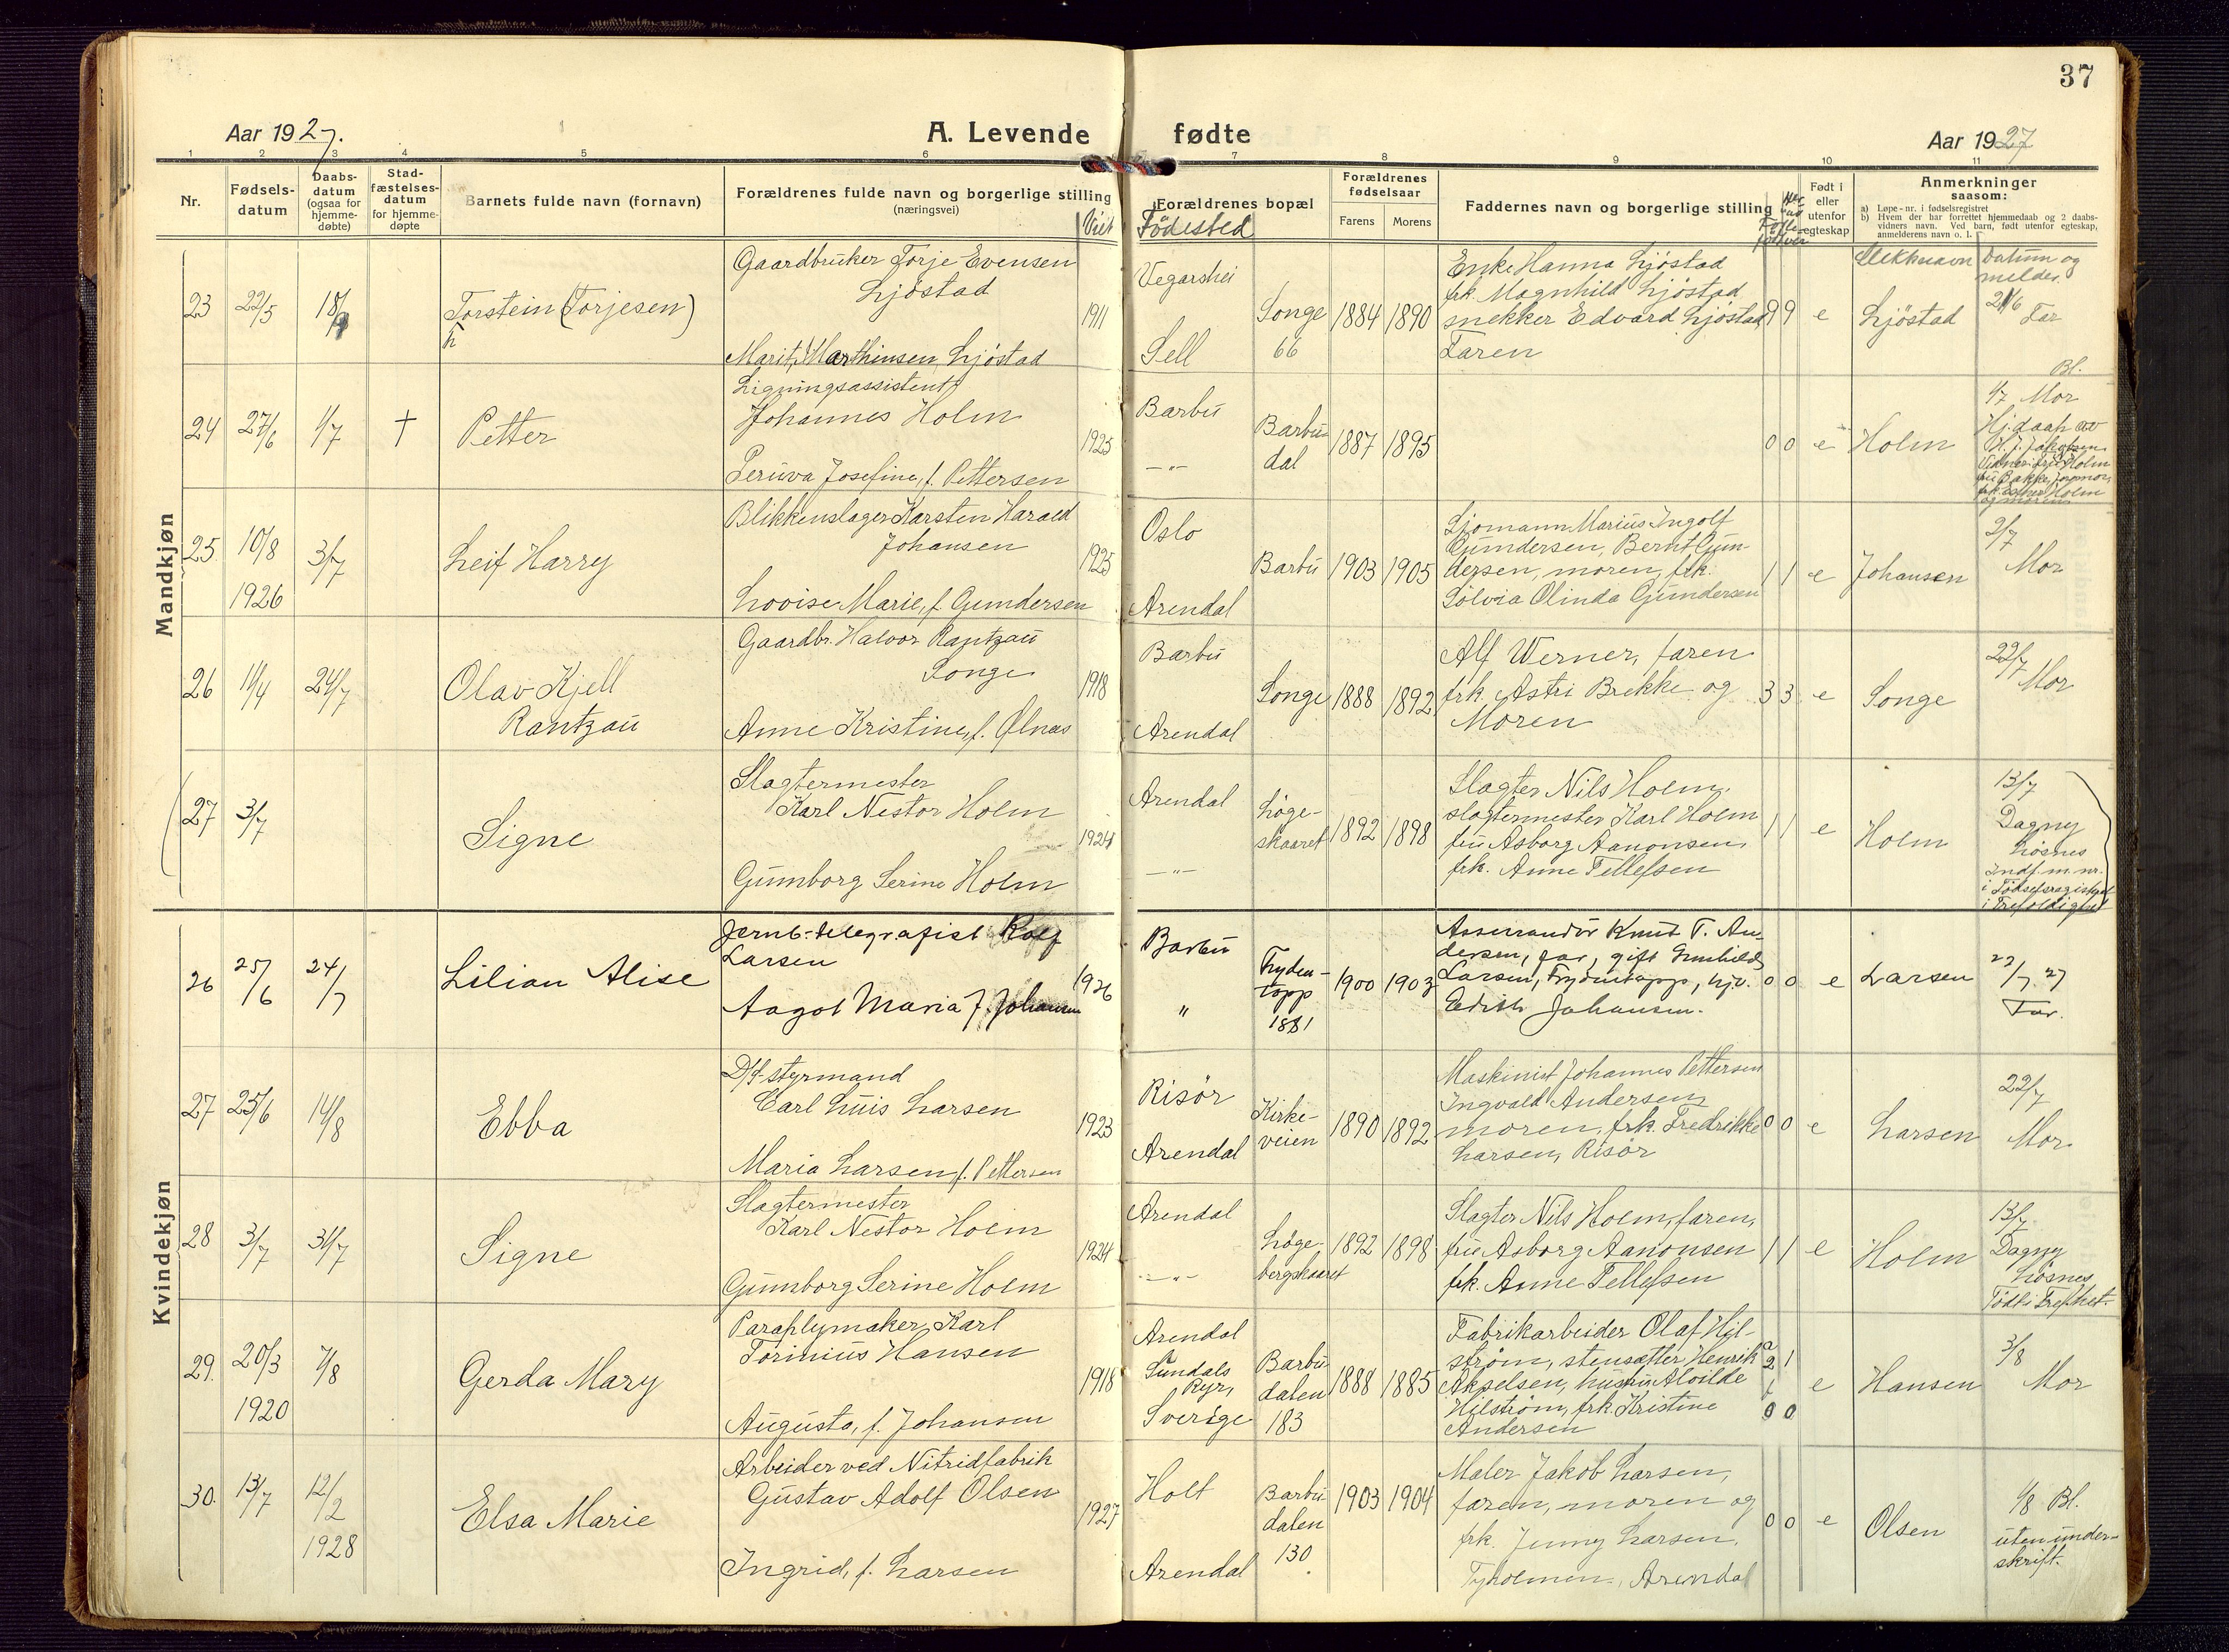 37
Aar 1927.
A. Levende fødte
Aar 1927
1 2 3 4 5 6 7 8 9 10 11
Nr.
Fødsels-
datum
Daabs-
datum
(ogsaa for
hjemme-
døbte)
Stad-
fæstelses-
datum
for hjemme-
døpte
Barnets fulde navn (fornavn)
Forældrenes fulde navn og borgerlige stilling
(næringsvei)
Viet
Forældrenes bopæl
Fødested
Forældrenes
fødselsaar
Farens Morens
Faddernes navn og borgerlige stilling
Født i
eller
utenfor
egteskap
Anmerkninger
saasom:
a) Løpe-nr. i fødselsregistret
b) Hvem der har forrettet hjemmedaab og 2 daabs-
vidners navn. Ved barn, født utenfor egteskap,
anmelderens navn o. l.
Mandkjøn
23
22/5
18/9
Torstein (Torjesen)
Gaardbruker Torje Evensen
Ljøstad
Marit, Marthinsen, Ljøstad
1911
Vegarshei
Sell
Songe
66
1884 1890
Enke Hanna Ljøstad
frk. Magnhild Ljøstad
snekker Edvard Ljøstad
Faren
9 9 e
Slektsnavn
Ljøstad
Datum og
melder
21/6
Far
24
27/6
1/7
†
Petter
Ligningsassistent
Johannes Holm
Peruva Josefine, f. Pettersen
1925
Barbu
—"—
Barbu-
dal
1887 1895
0 0 e
Holm
Bl.
1/7 Mor
Hj.daap av
25.
10/8
1926
3/7
Leif Harry
Blikkenslager Karsten Harald
Johansen
Lovise Marie, f. Gundersen
1925
Oslo
Arendal
Barbu
1903 1905
Sjømann Marius Ingolf
Gundersen, Bernt Gun-
dersen, moren, frk.
Solvia Olinda Gundersen
1 1 e
Johansen
2/7
Mor
26
11/4
24/7
Olav Kjell
Rantzau
Gaardbr. Halvor Rantzau
Songe
Anne Kristine, f. Ølnes
1918
Barbu
Arendal
Songe
1888 1892
Alf Werner, faren
frk. Astri Brekke og
Moren
3 3 e
Songe
22/7
Mor
27
3/7
Signe
Slagtermester
Karl Nestor Holm
Gunnborg Serine Holm
1924
Arendal
—"—
Løge-
skaaret
1892 1898
Slagter Nils Holm,
slagtermester Karl Holm
fru Asborg Aanonsen,
frk. Anne Tellefsen
1 1 e
Holm
13/7
Dagny
Løsnes
Indf. m. nr.
i Fødselsregistret
i Trefoldighet
Kvindekjøn
26
25/6
24/7
Lilian Alise
Jernb.-telegrafist Rolf
Larsen
Aagot Maria f. Johansen
1926
Barbu
"
Fryden-
topp
1881
1900 1903
Assurandør Knut T. An-
dersen, far, gift Gunhild
Larsen, Frydentopp, hjv.
Edith Johansen.
0 0 e
Larsen
22/7.27
Far.
27
25/6
14/8
Ebba
D/S-styrmand
Carl Luis Larsen
Maria Larsen, f. Pettersen
1923
Risør
Arendal
Kirke-
veien
1890 1892
Maskinist Johannes Pettersen
Ingvald Andersen,
moren, frk. Fredrikke
Larsen, Risør
0 0 e
Larsen
22/7
Mor
28
3/7
31/7
Signe
Slagtermester
Karl Nestor Holm
Gunnborg Serine Holm
1924
Arendal
—"—
Løge-
bergskaaret
1892 1898
Slagter Nils Holm, faren,
fru Asborg Aanonsen
frk. Anne Tellefsen
1 1 e
Holm
13/7
Dagny
Løsnes
Født i Trefhet.
29.
20/3
1920
7/8
Gerda Mary
Paraplymaker Karl
Torinius Hansen
Augusta, f. Johansen
1918
Arendal
Sundals
Ryr,
Sverige
Barbu
dalen
183
1888 1885
Fabrikarbeider Olaf Hil-
strøm, stensætter Henrik
Akselsen, husfru Alvilde
Hilstrøm, frk. Kristine
Andersen
2 1
0 0
e
Hansen
3/8
Mor
30.
13/7
12/2
1928
Elsa Marie
Arbeider ved Nitridfabrik
Gustav Adolf Olsen
Ingrid, f. Larsen
1927
Holt
Arendal
Barbu
dalen
130
1903 1904
Maler Jakob Larsen,
faren, moren og
frk. Jenny Larsen,
Tyholmen, Arendal
0 0 e
Olsen
1/8 Bl.
uten under-
skrift.